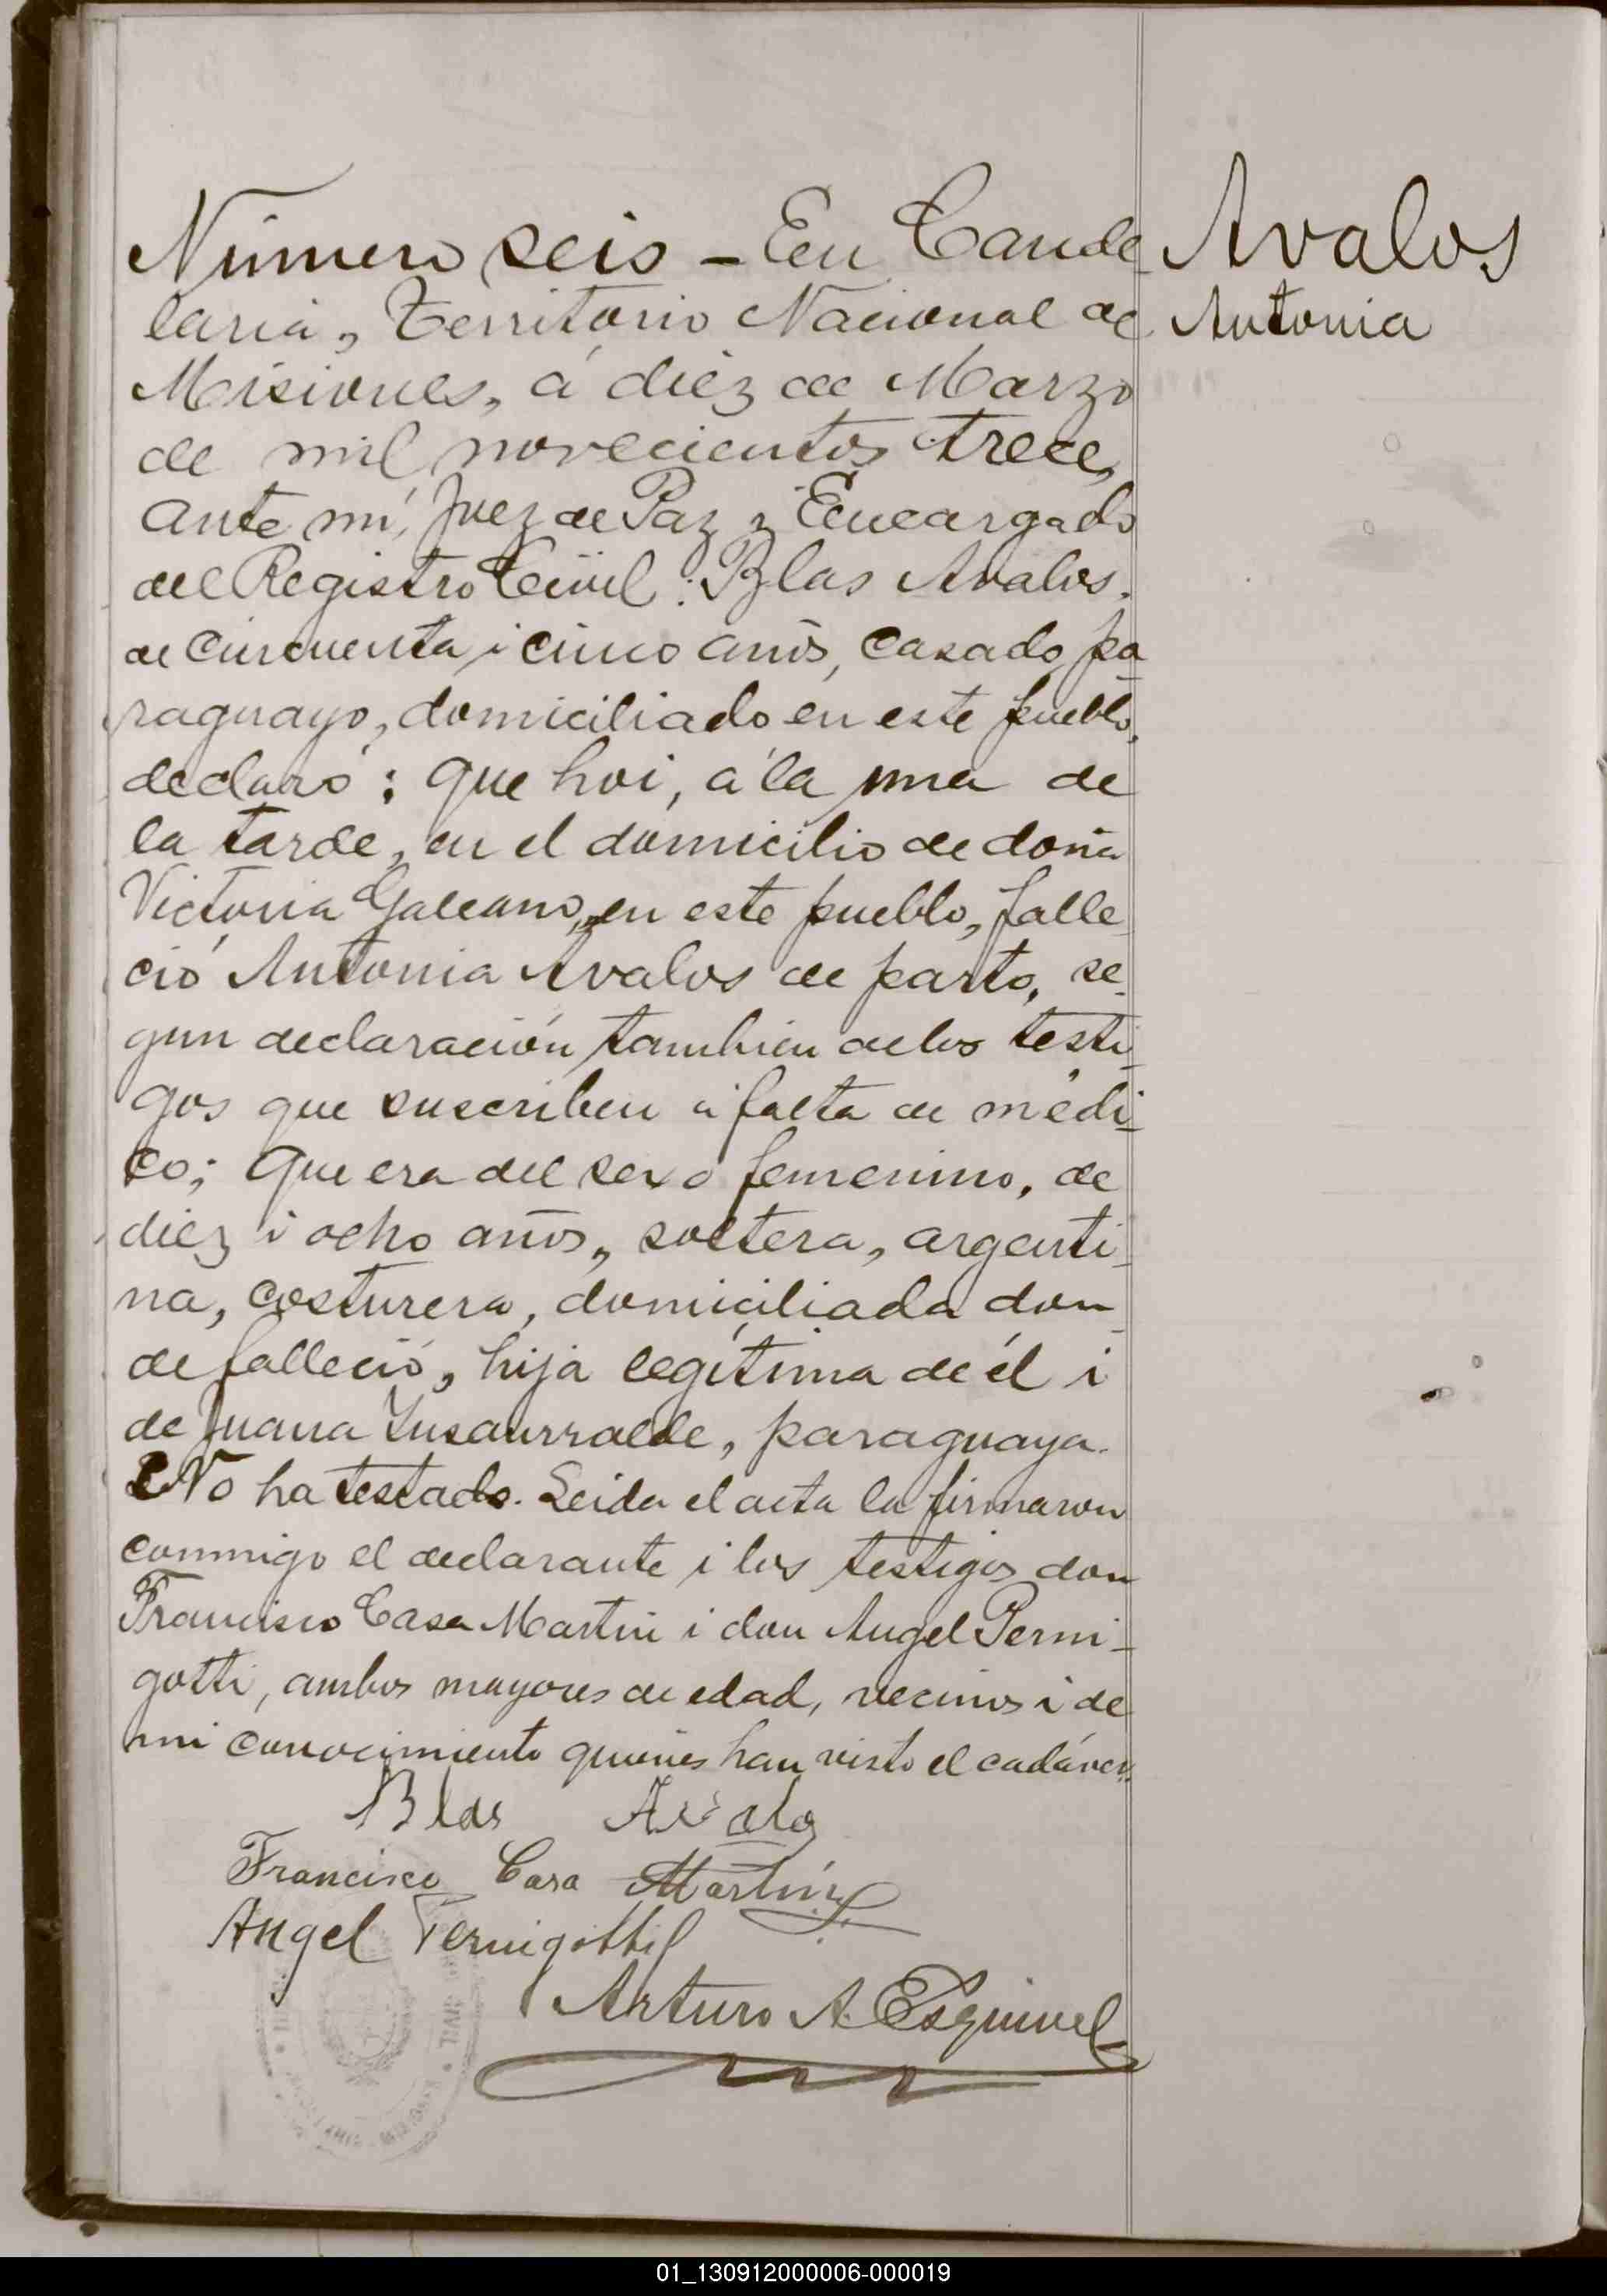 Número seis - En Cande
laria, Territorio Nacional de
Misiones, á diez de Marzo
de mil novecientos trece,
ante mí, Juez de Paz y Encargado
del Registro Civil: Blas Avalos,
de cincuenta i cinco años, casado, pa
raguayo, domiciliado en este pueblo,
declaró: Que hoi, á la una de
la tarde, en el domicilio de doña
Victoria Galeano, en este pueblo, falle
ció Antonia Avalos de parto, se
gun declaración tambien de los testi
gos que suscriben á falta de médi
co; Que era del sexo femenino, de
diez i ocho años, soltera, argenti
na, costurera, domiciliada don
de falleció, hija legítima de él i
de Juana Insaurralde, paraguaya.
No ha testado. Leida el acta la firmaron
conmigo el declarante i los testigos don
Francisco Casa Martin i don Angel Perni-
gotti, ambos mayores de edad, vecinos i de
mi conocimiento quienes han visto el cadáver.
Avalos
Antonia
Blas Avalos
Francisco Casa Martín
Angel Pernigotti
Arturo A. Esquivel
01_130912000006-000019